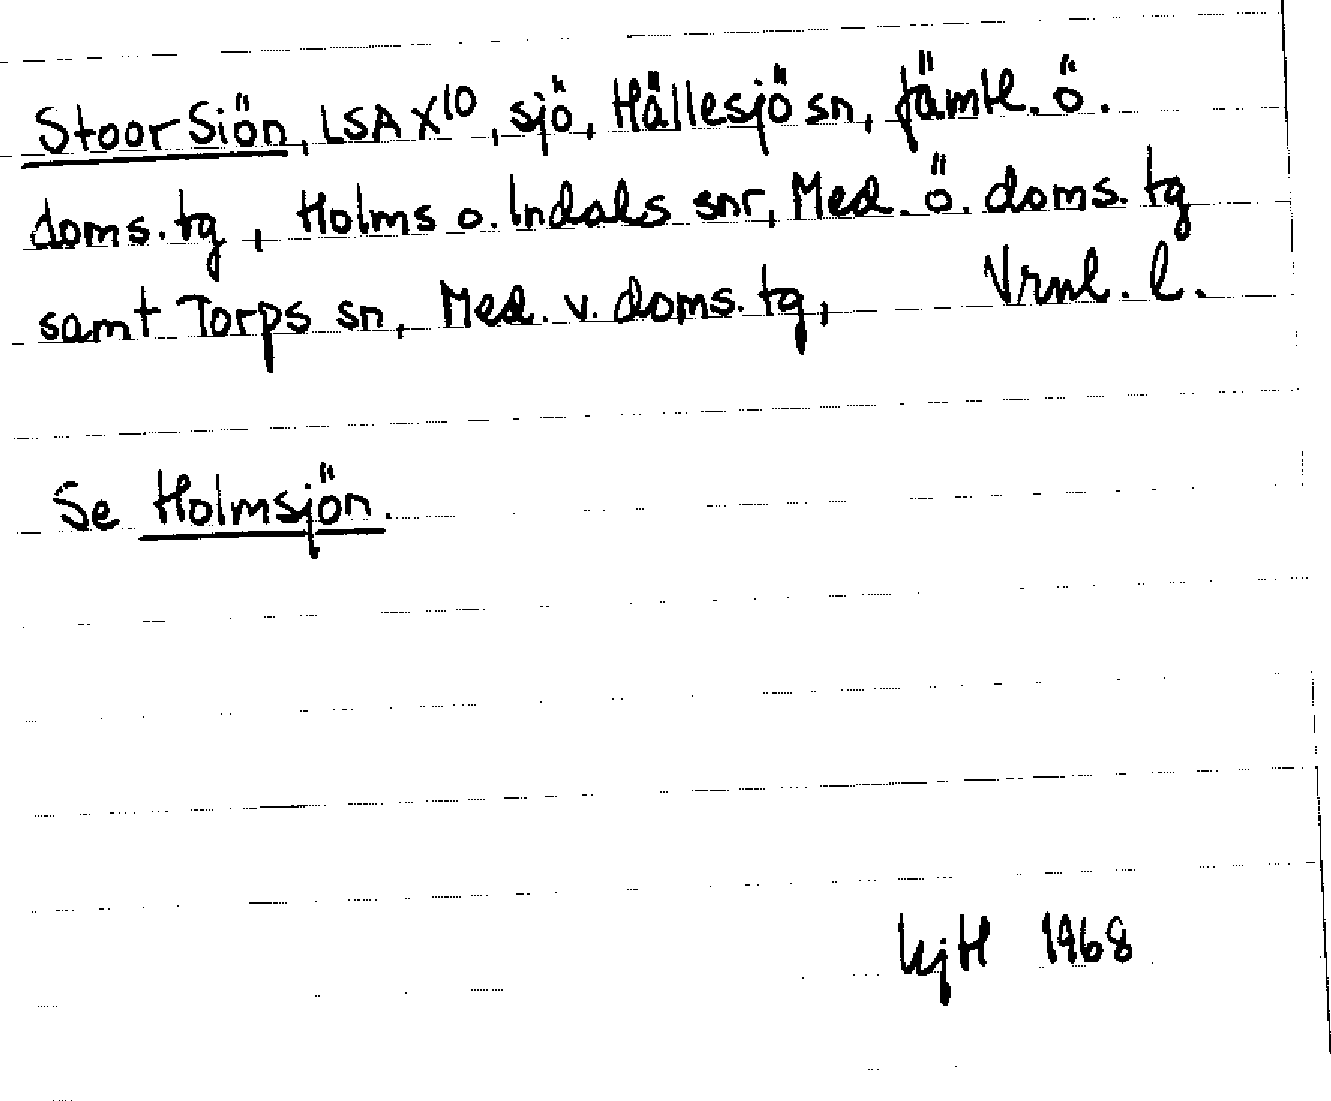 Stoor Siön, LSA X10, sjö, Hällesjö sn, Jämtl. ö.
doms. tg, Holms o. Indals snr, Med. ö. doms. tg
samt Torps sn, Med. v. doms. tg, Vrnl. l.
Se Holmsjön.
KjH 1968